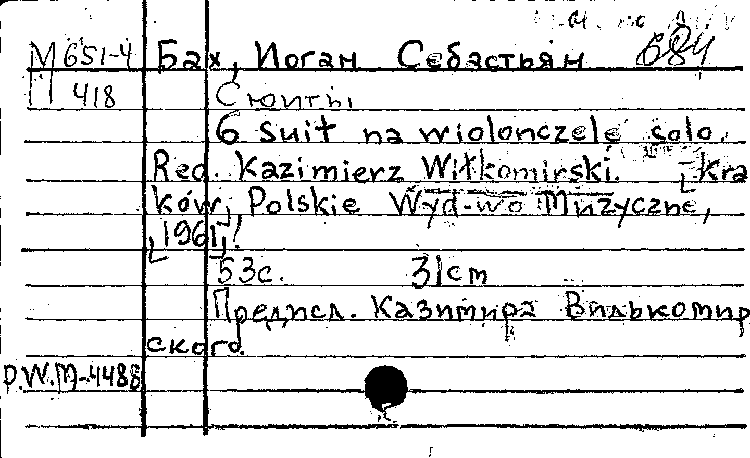 М651-4 Бах, Иоган Себастьян 684
П 418 Сюиты
6 Suit na wiolonczelę solo.
Red. Kazimierz Wiłkomirski. [Kra
ków], Polskie Wyd-wo Muzyczne,
[1961]!
53с. 31cm
Предисл. Казимира Вилькомир
ского.
P.W.M-4488